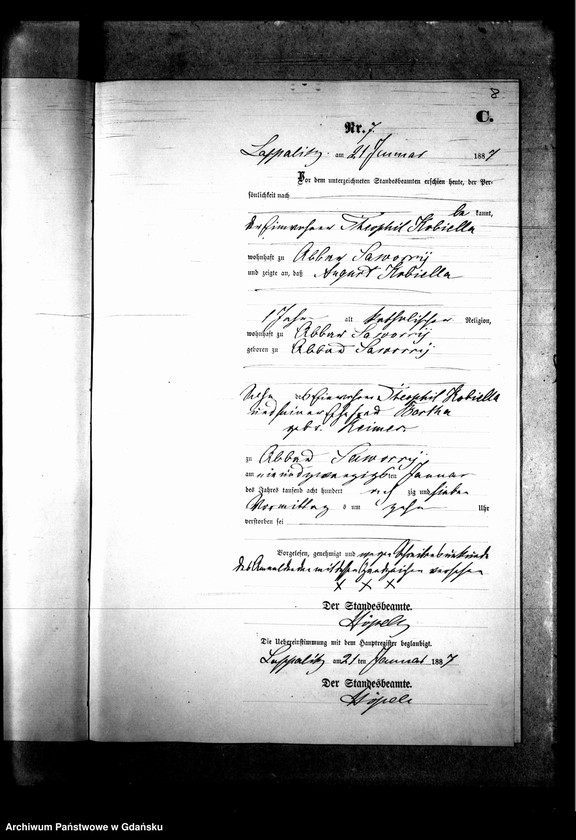 8
C.
Nr. 7.
Lappalitz am 21 Januar 1887
Vor dem unterzeichneten Standesbeamten erschien heute, der Per-
sönlichkeit nach
be kannt,
der Einwohner Theophil Kobiella
wohnhaft zu Abbau
und zeigte an, daß August Kobiella
1 Jahr alt katholischer Religion,
wohnhaft zu Abbau
geboren zu Abbau
Sohn des Einwohner Theophil Kobiella
und seiner Ehefrau Bertha
geb. Reimer
zu Abbau
am ein und zwanzigsten Januar
des Jahres tausend acht hundert acht zig und sieben
Vormittag s um zehn Uhr
verstorben sei
Vorgelesen, genehmigt und wegen Schreibensunkunde
des Anmeldenden mit dessen Handzeichen versehen
X X X
Der Standesbeamte.
Die Uebereinstimmung mit dem Hauptregister beglaubigt.
Lappalitz am 21 ten Januar 1887
Der Standesbeamte.
Archiwum Państwowe w Gdańsku